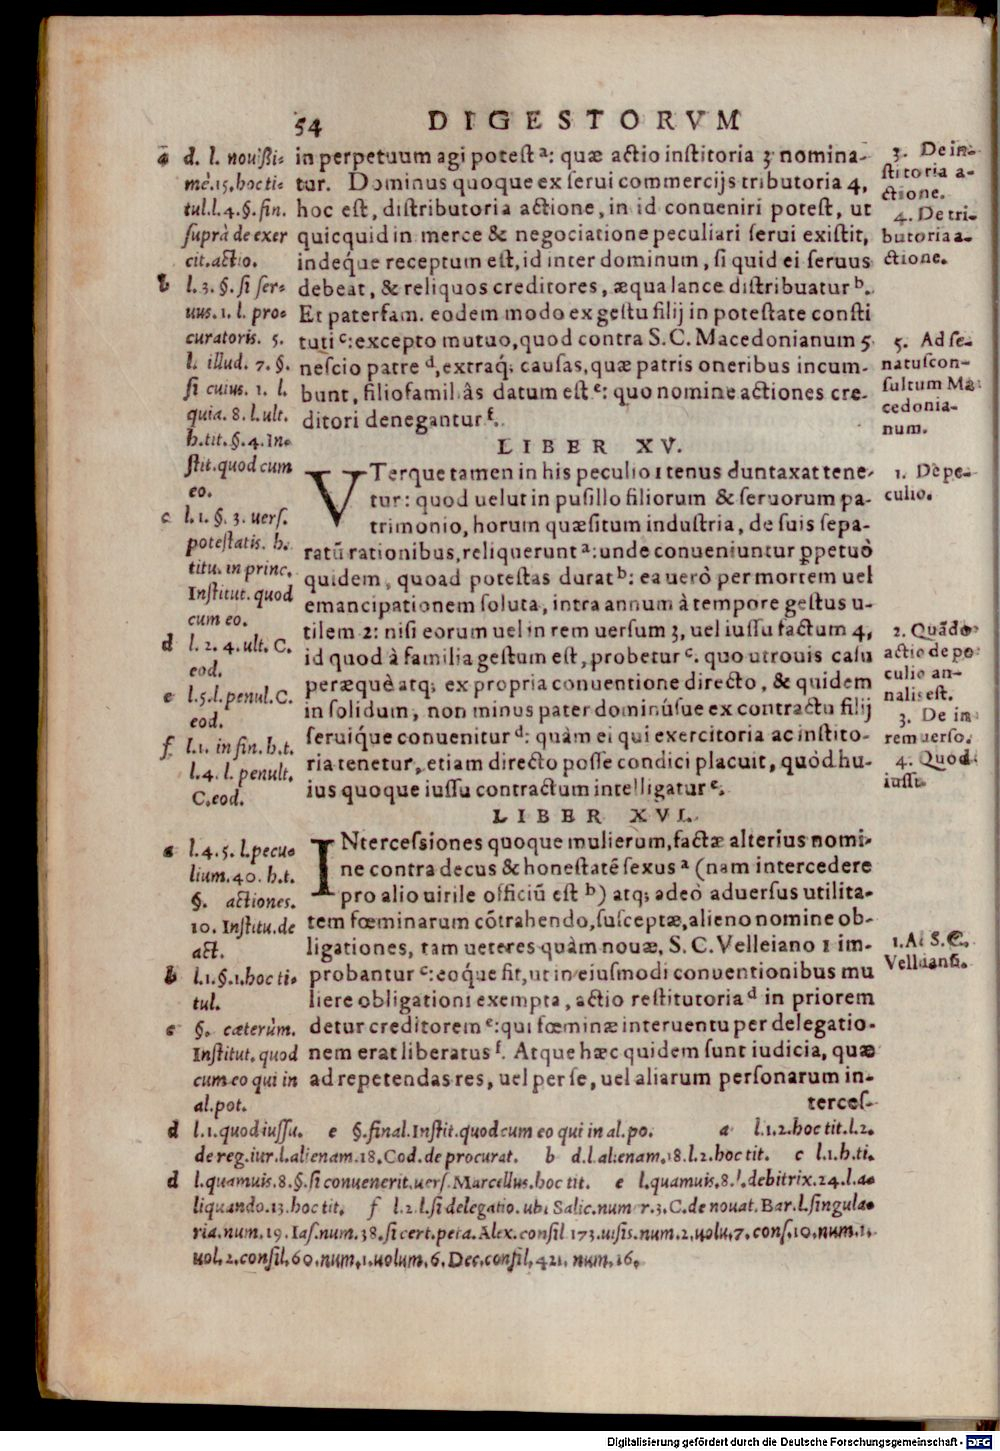 54 DIGESTORVM
in perpetuum agi potest a: quæ actio institoria 3 nomina-
tur. Dominus quoque ex serui commercijs tributoria 4,
hoc est, distributoria actione, in id conueniri potest, ut
quicquid in merce & negociatione peculiari serui existit,
indeq́ue receptum est, id inter dominum, si quid ei seruus
debeat, & reliquos creditores, æqua lance distribuatur b.
Et paterfam. eodem modo ex gestu filij in potestate consti
tuti c: excepto mutuo, quod contra S.C. Macedonianum 5
nescio patre d, extraq; causas, quæ patris oneribus incum-
bunt, filiofamiliâs datum est e: quo nomine actiones cre-
ditori denegantur f.
LIBER XV.
VTerque tamen in his peculio 1 tenus duntaxat tene-
tur: quod uelut in pusillo filiorum & seruorum pa-
trimonio, horum quæsitum industria, de suis sepa-
ratũ rationibus, reliquerunt a: unde conueniuntur ꝑpetuò
quidem, quoad potestas durat b: ea uerò per mortem uel
emancipationem soluta, intra annum à tempore gestus u-
tilem 2: nisi eorum uel in rem uersum 3, uel iussu factum 4,
id quod à familia gestum est, probetur c. quo utrouis casu
peræquè atq; ex propria conuentione directo, & quidem
in solidum, non minus pater dominúsue ex contractu filij
seruíque conuenitur d: quàm ei qui exercitoria ac instito-
ria tenetur, etiam directo posse condici placuit, quòd hu-
ius quoque iussu contractum intelligatur e.
LIBER XVI.
INtercessiones quoque mulierum, factæ alterius nomi-
ne contra decus & honestatẽ sexus a (nam intercedere
pro alio uirile officiũ est b) atq; adeò aduersus utilita-
tem fœminarum cõtrahendo, susceptæ, alieno nomine ob-
ligationes, tam ueteres quàm nouæ, S.C. Velleiano 1 im-
probantur c: eoque fit, ut in eiusmodi conuentionibus mu
liere obligationi exempta, actio restitutoria d in priorem
detur creditorem e: qui fœminæ interuentu per delegatio-
nem erat liberatus f. Atque hæc quidem sunt iudicia, quæ
ad repetendas res, uel per se, uel aliarum personarum in-
terces-
a d. l. nouißi-
mè.15.hoc ti-
tul.l.4.§.fin.
suprà de exer
cit.actio.
b l.3.§.si ser-
uus.1.l.pro-
curatoris.5.
l. illud.7.§.
si cuius.1.l.
quia.8.l.ult.
h.tit.§.4.In-
stit.quod cum
eo.
c l.1.§.3.uers.
potestatis. h.
titu. in princ.
Institut.quod
cum eo.
d l.2.4.ult.C.
eod.
e l.5.l.penul.C.
eod.
f l.1. in fin.h.t.
l.4.l.penult.
C.eod.
a l.4.5.l.pecu-
lium.40.h.t.
§. actiones.
10. Institu.de
act.
b l.1.§.1.hoc ti-
tul.
c §. cæterùm.
Institut.quod
cum eo qui in
al.pot.
d l.1.quod iussu. e §.final.Instit.quod cum eo qui in al.po. a l.1.2.hoc tit.l.2.
de reg.iur.l.alienam.18.Cod.de procurat. b d.l.alienam.18.l.2.hoc tit. c l.1.h.ti.
d l.quamuis.8.§.si conuenerit.uers.Marcellus.hoc tit. e l.quamuis.8.l.debitrix.24.l.a-
liquando.13.hoc tit. f l.2.l.si delegatio.ubi Salic.numer.3.C.de nouat.Bar.l.singula-
ria.num.19.Ias.num.38.si cert.peta.Alex.consil 173.uisis.num.2.uolu.7.cons.10.num.1.
uol.2.consil.60.num.1.uolum.6.Dec.consil.421.num.16.
3. De in-
stitoria a-
ctione.
4. De tri-
butoria a-
ctione.
5. Ad se-
natuscon-
sultum Ma
cedonia-
num.
1. De pe-
culio.
2. Quãdo
actio de pe
culio an-
nalis est.
3. De in
rem uerso.
4. Quod
iussu.
1. Ad S.C.
Velleianũ.
Digitalisierung gefördert durch die Deutsche Forschungsgemeinschaft - DFG